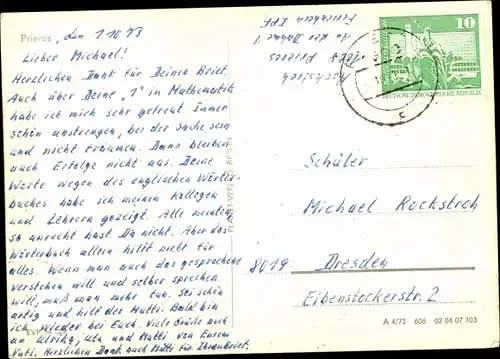 Prieros, den 1.10.73
Lieber Michael!
Herzlichen Dank für Deinen Brief.
Auch über Deine "1" in Mathematik
habe ich mich sehr gefreut. Immer
schön anstrengen, bei der Sache sein
und nicht träumen. Dann bleiben
auch Erfolge nicht aus. Deine
Worte wegen des englischen Wörter-
buches habe ich meinen Kollegen
und Lehrern gezeigt. Alle meinten,
so unrecht hast Du nicht. Aber das
Wörterbuch allein hilft nicht für
alles. Wenn man auch das gesprochene
verstehen will und selber sprechen
will, muß man mehr tun. Sei schön
artig und hilf der Mutti. Bald bin
ich wieder bei Euch. Viele Grüße auch
an Ulrike, Uta und Mutti von Eurem
Vati. Herzlichen Dank auch Mutti für Ihren Brief.
Rockstroh
1609 Prieros
An der Dahme 1
Ferienheim
PLANET-VERLAG BERLIN
10
DEUTSCHE DEMOKRATISCHE REPUBLIK
c
Schüler
Michael Rockstroh
8019 Dresden
Eibenstockerstr. 2
EVP
A 4/73 606 02 04 07 103